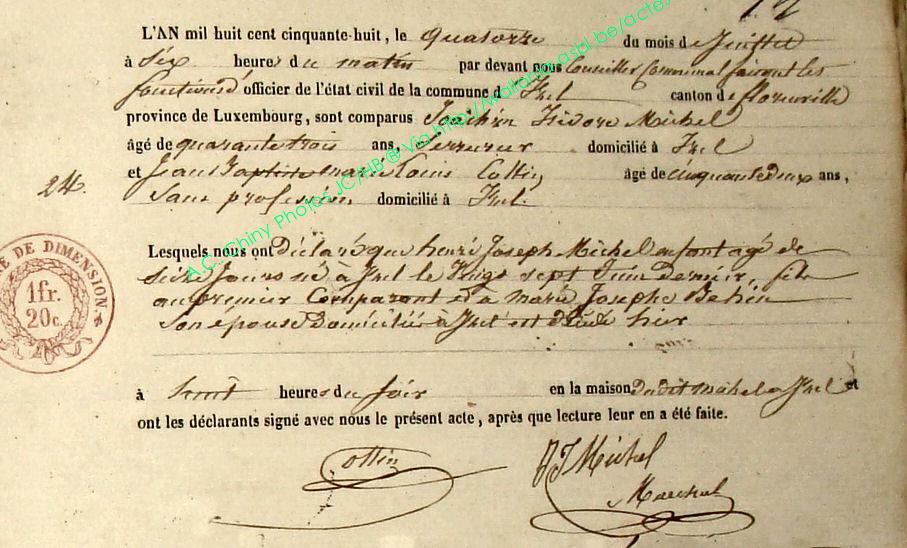 L'AN mil huit cent cinquante-huit, le quatorze du mois de Juillet
à six heures du matin par devant nous Conseiller Communal faisant les
fonctions d'officier de l'état civil de la commune d Izel canton de florenville
province de Luxembourg, sont comparus Joachim Isidore Michel
âgé de quarante trois ans, Serrurier domicilié à Izel
et Jean Baptiste marie Louis Collin âgé de Cinquante deux ans,
24.
Sans profession domicilié à Izel.
Lesquels nous ont Déclaré que henri Joseph Michel enfant agé de
Seize Jours né à Izel le Vingt sept Juin Dernier, fils
au premier Comparant et à marie Josephe
Son épouse Domiciliés à Izel est décédé hier
à heures du soir en la maison dudit michel à Izel et
ont les déclarants signé avec nous le présent acte, après que lecture leur en a été faite.
ollin
JJ Michel
Marechal
DE DIMENSION
1 fr.
20 c.
A.C. Chiny Photos JC/HB ® Via http://wallonia.asbl.be/actes